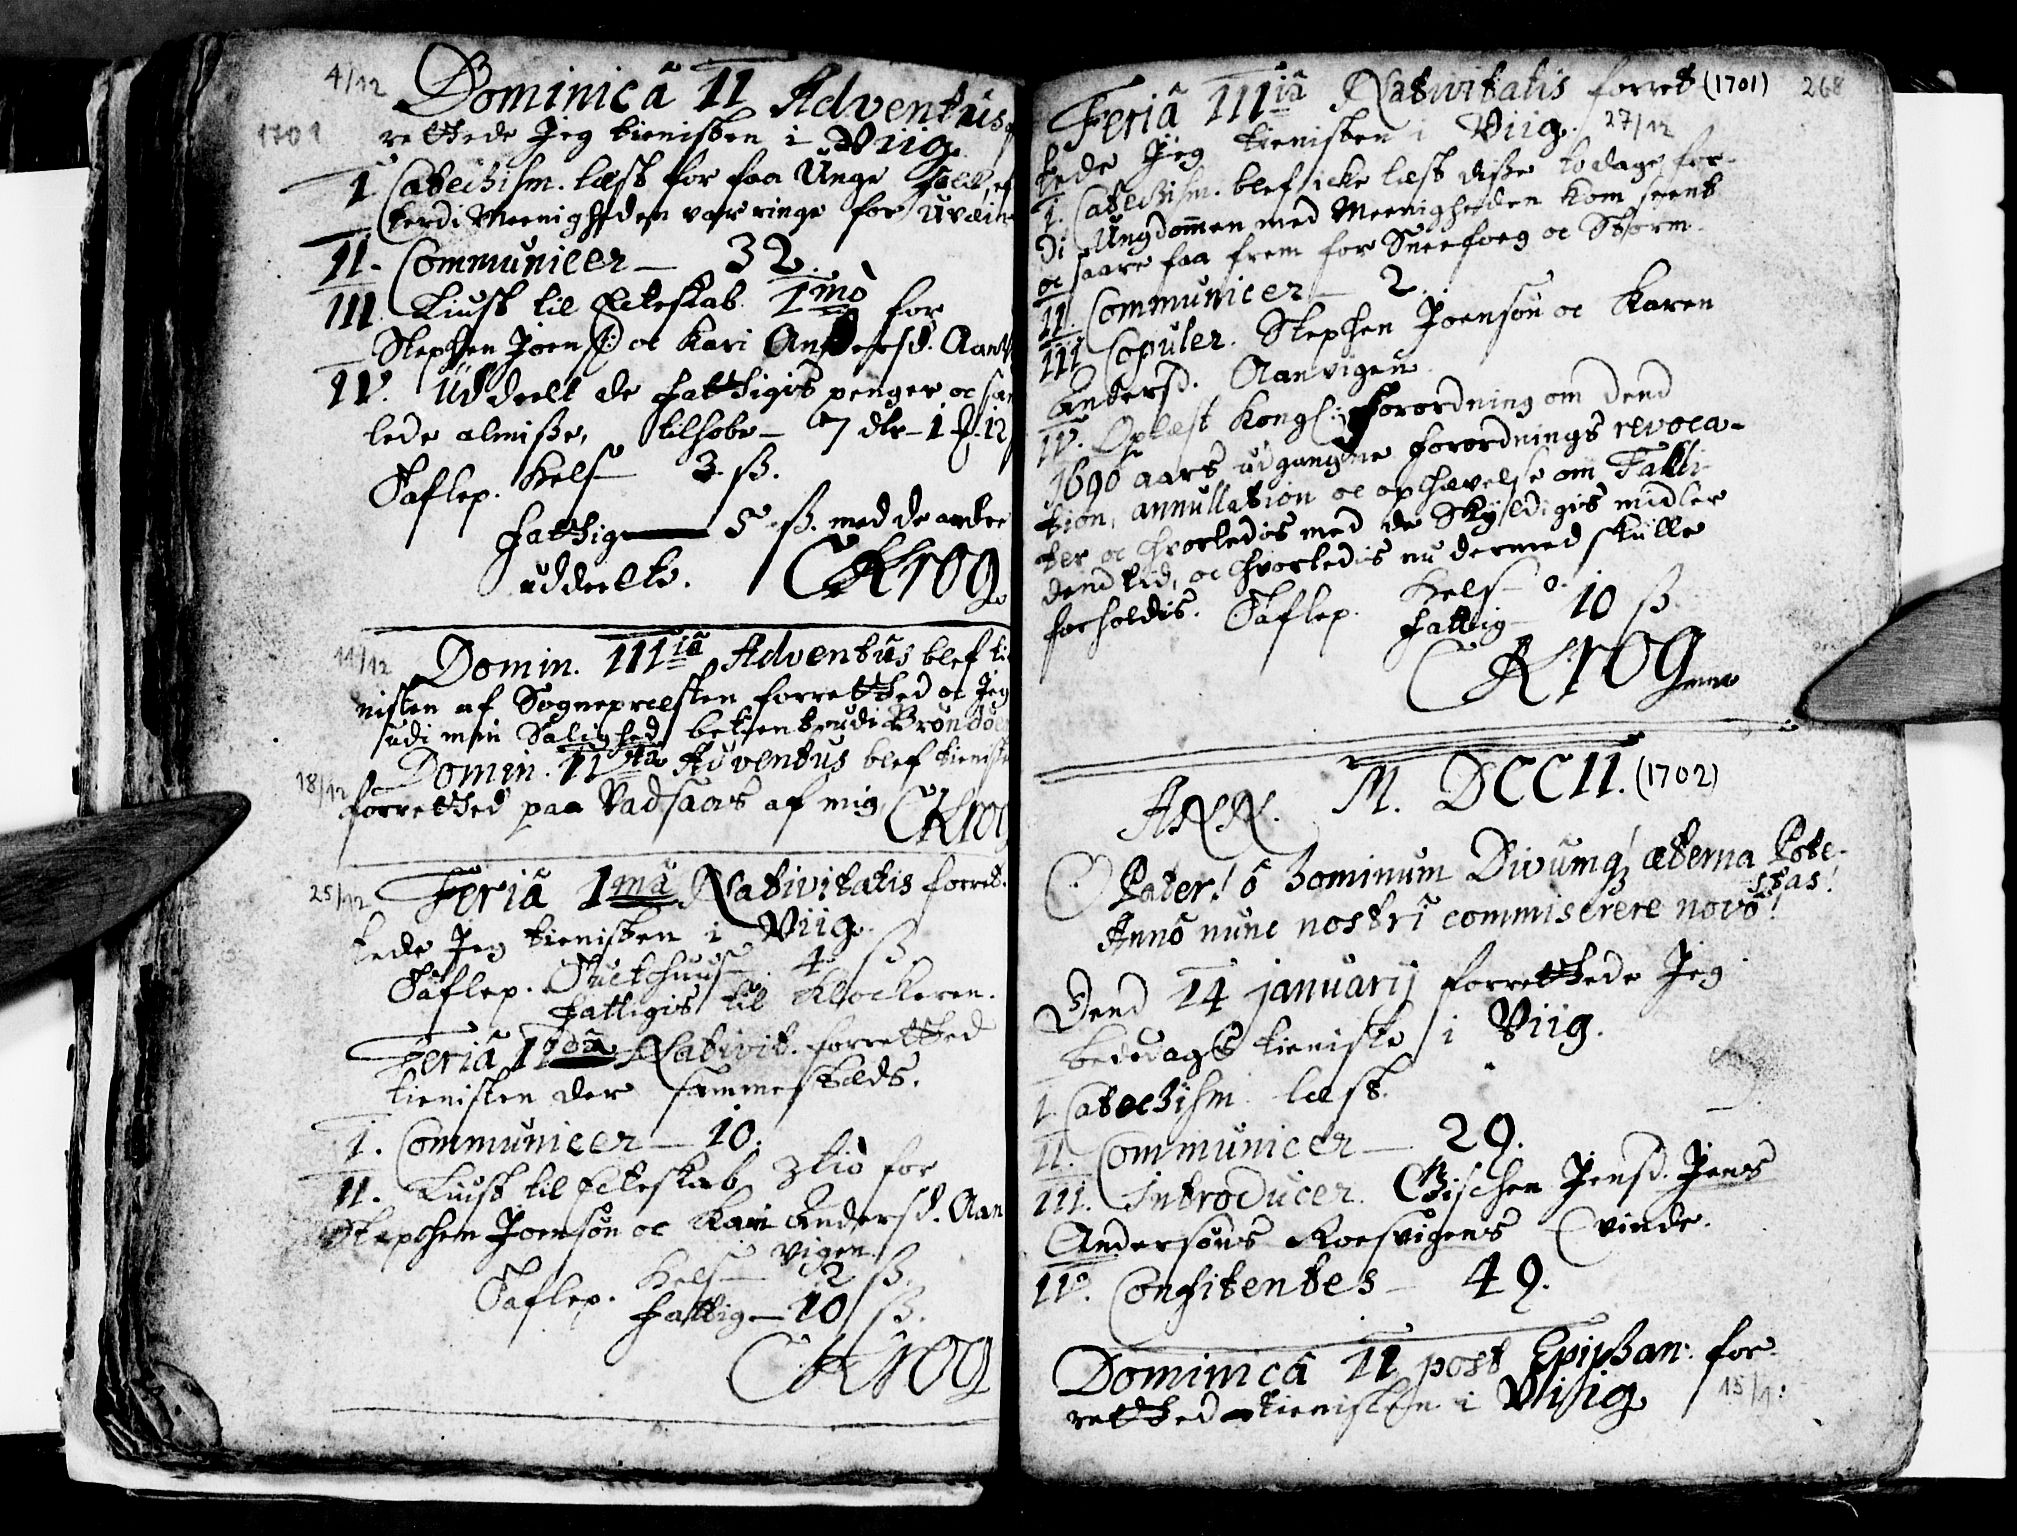 4/12 Dominicâ II Adventûs
1701 rettede Jeg tienisten i Viig
I Catechism. læst for faa Unge folk, ef
terdi Meenigheden var ringe for uveir
II. Communicer — 32.
III. Liust til Ecteskab 1mò for
Stephen Joens: oc Kari Andersd. Aanv
IV. Uddeelt de fattigis penger oc sam
lede almisse, tilhobe — 7 dlr – 1 – 12
Taflep. Kels — 3. ß.
fattig — 5 ß. med de andre
uddeelte. CKrog
11/12 Domin. IIIia Adventûs blef ti
nisten af Sognepræsten forretted oc Jeg
udi min Salighed betient udi Brönöe
18/12 Domin. IVta Adventus blef tieniste
forretted paa Vadsaas af mig CKrog
25/12 Feriâ 1mâ Nativitatis forret
tede Jeg tienisten i Viig.
Taflep. Tuctshuus 4 ß.
fattigis til Klockeren.
Feriâ IIdâ Nativit. forretted
tienisten der sammestæds.
I. Communicer — 10.
II. Liust til Ecteskab 3tiò for
Stephen Joensøn oc Kari Andersd. Aan
vigen.
Taflep. Kels — 2 ß.
fattig — 10 ß.
CKrog
Feriâ IIIiâ Nativitatis forret (1701) 268
tede Jeg tienisten i Viig. 27/12
I. Catechism. blef icke læst disse to dage for-
di Ungdommen med Meenigheden kom seent
oc saare faa frem for Sneefoeg oc Storm.
II Communicer — 2.
III Copuler. Stephen Joensøn oc Karen
Andersd. Aanvigen.
IV. Oplæst Kongl: Forordning om dend
1690 aars udgangne forordnings revoca-
tion, annullation oc ophævelse om Falli-
ter oc hvorledis med de Skyldigis midler
dend tid, oc hvorledis nu dermed skulle
forholdis. Taflep. Kels — 0.
fattig — 10 ß.
CKrog
ANN. M. DCCII. (1702)
O Pater! ô hominum Divumq; æterna Pote-
stas!
Annô nunc nostri commiserere novô!
Dend 14 januarij forrettede Jeg
bededags tieniste i Viig.
I Catechism. læst.
II. Communicer — 29.
III. Introducer. Gischen Jensd. Jens
Andersøns Roesvigens Qvinde.
IV. Confitentes — 49.
Dominicâ II post Epiphan: for-
retted tienisten i Viig 15/1: